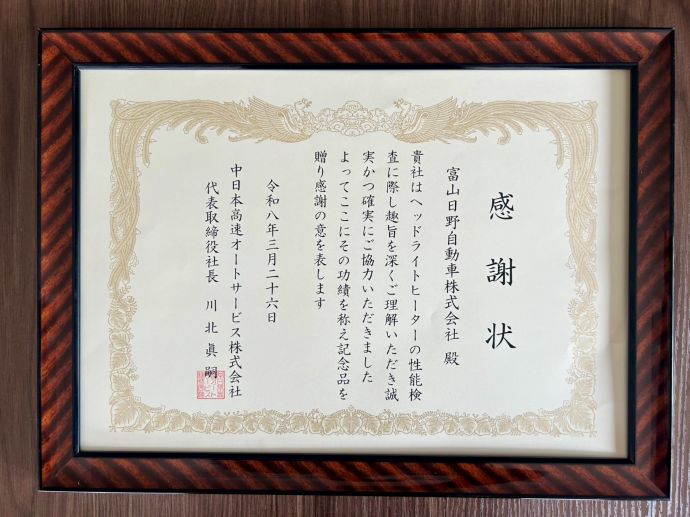 感謝状
富山日野自動車株式会社 殿
貴社はヘッドライトヒーターの性能検
査に際し趣旨を深くご理解いただき誠
実かつ確実にご協力いただきました
よってここにその功績を称え記念品を
贈り感謝の意を表します
令和八年三月二十六日
中日本高速オートサービス株式会社
代表取締役社長 川北眞嗣